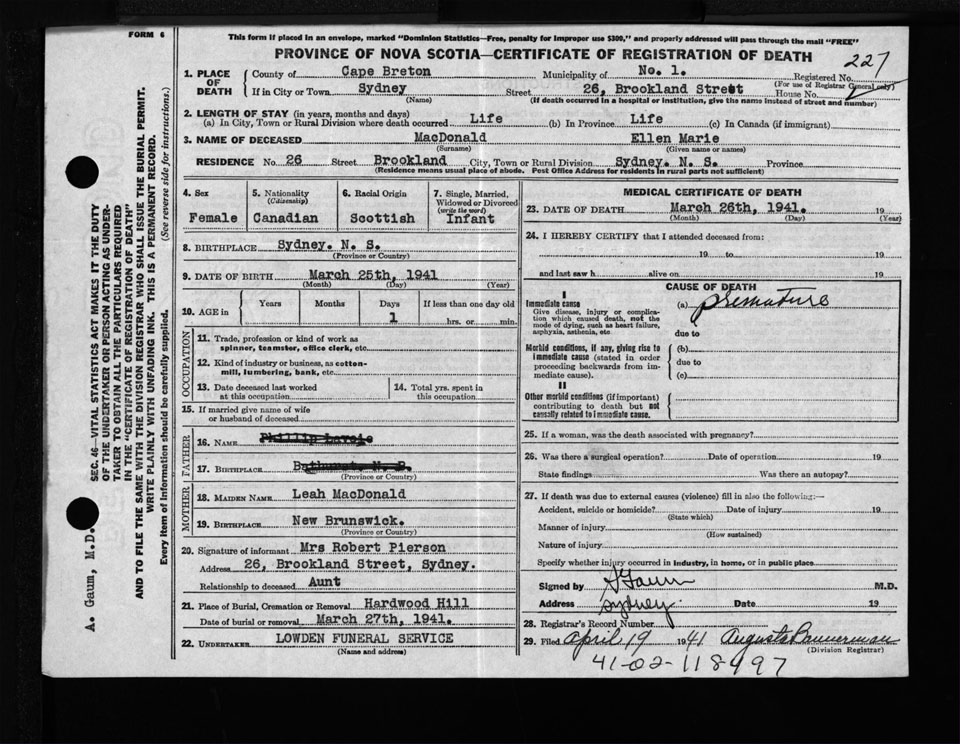 FORM 6
This form if placed in an envelope, marked "Dominion Statistics—Free, penalty for improper use $300," and properly addressed will pass through the mail "FREE"
PROVINCE OF NOVA SCOTIA—CERTIFICATE OF REGISTRATION OF DEATH
227
1. PLACE OF DEATH
County of Cape Breton Municipality of No. 1. Registered No.
(For use of Registrar General only)
If in City or Town Sydney Street 26, Brookland Street House No.
(Name) (If death occurred in a hospital or institution, give the name instead of street and number)
2. LENGTH OF STAY (in years, months and days)
(a) In City, Town or Rural Division where death occurred Life (b) In Province Life (c) In Canada (if immigrant)
3. NAME OF DECEASED MacDonald Ellen Marie
(Surname) (Given name or names)
RESIDENCE No. 26 Street Brookland City, Town or Rural Division Sydney. N. S. Province
(Residence means usual place of abode. Post Office Address for residents in rural parts not sufficient)
4. Sex Female
5. Nationality (Citizenship) Canadian
6. Racial Origin Scottish
7. Single, Married, Widowed or Divorced (write the word) Infant
8. BIRTHPLACE Sydney. N. S.
(Province or Country)
9. DATE OF BIRTH March 25th, 1941
(Month) (Day) (Year)
10. AGE in Years Months Days 1 If less than one day old hrs. or min.
OCCUPATION
11. Trade, profession or kind of work as spinner, teamster, office clerk, etc.
12. Kind of industry or business, as cotton-mill, lumbering, bank, etc.
13. Date deceased last worked at this occupation
14. Total yrs. spent in this occupation
15. If married give name of wife or husband of deceased
FATHER
16. NAME
17. BIRTHPLACE
(Province or Country)
MOTHER
18. MAIDEN NAME Leah MacDonald
19. BIRTHPLACE New Brunswick.
(Province or Country)
20. Signature of informant Mrs Robert Pierson
Address 26, Brookland Street, Sydney.
Relationship to deceased Aunt
21. Place of Burial, Cremation or Removal Hardwood Hill
Date of burial or removal March 27th, 1941.
22. UNDERTAKER LOWDEN FUNERAL SERVICE
(Name and address)
MEDICAL CERTIFICATE OF DEATH
23. DATE OF DEATH March 26th, 1941. 19
(Month) (Day) (Year)
24. I HEREBY CERTIFY that I attended deceased from:
19 to 19
and last saw h alive on 19
CAUSE OF DEATH
I
Immediate cause (a) premature
Give disease, injury or complication which caused death, not the mode of dying, such as heart failure, asphyxia, asthenia, etc.
due to
Morbid conditions, if any, giving rise to immediate cause (stated in order proceeding backwards from immediate cause).
(b)
due to
(c)
II
Other morbid conditions (if important) contributing to death but not causally related to immediate cause.
25. If a woman, was the death associated with pregnancy?
26. Was there a surgical operation? Date of operation 19
State findings Was there an autopsy?
27. If death was due to external causes (violence) fill in also the following:—
Accident, suicide or homicide? Date of injury 19
(State which)
Manner of injury
(How sustained)
Nature of injury
Specify whether injury occurred in industry, in home, or in public place
Signed by Gaum M.D.
Address Sydney Date 19
28. Registrar's Record Number
29. Filed April 19 1941
(Division Registrar)
41-02-118997
A. Gaum, M.D.
SEC. 46—VITAL STATISTICS ACT MAKES IT THE DUTY
OF THE UNDERTAKER OR PERSON ACTING AS UNDER-
TAKER TO OBTAIN ALL THE PARTICULARS REQUIRED
IN THE "CERTIFICATE OF REGISTRATION OF DEATH"
AND TO FILE THE SAME WITH THE DIVISION REGISTRAR WHO SHALL ISSUE THE BURIAL PERMIT.
WRITE PLAINLY WITH UNFADING INK. THIS IS A PERMANENT RECORD.
Every item of information should be carefully supplied. (See reverse side for instructions.)